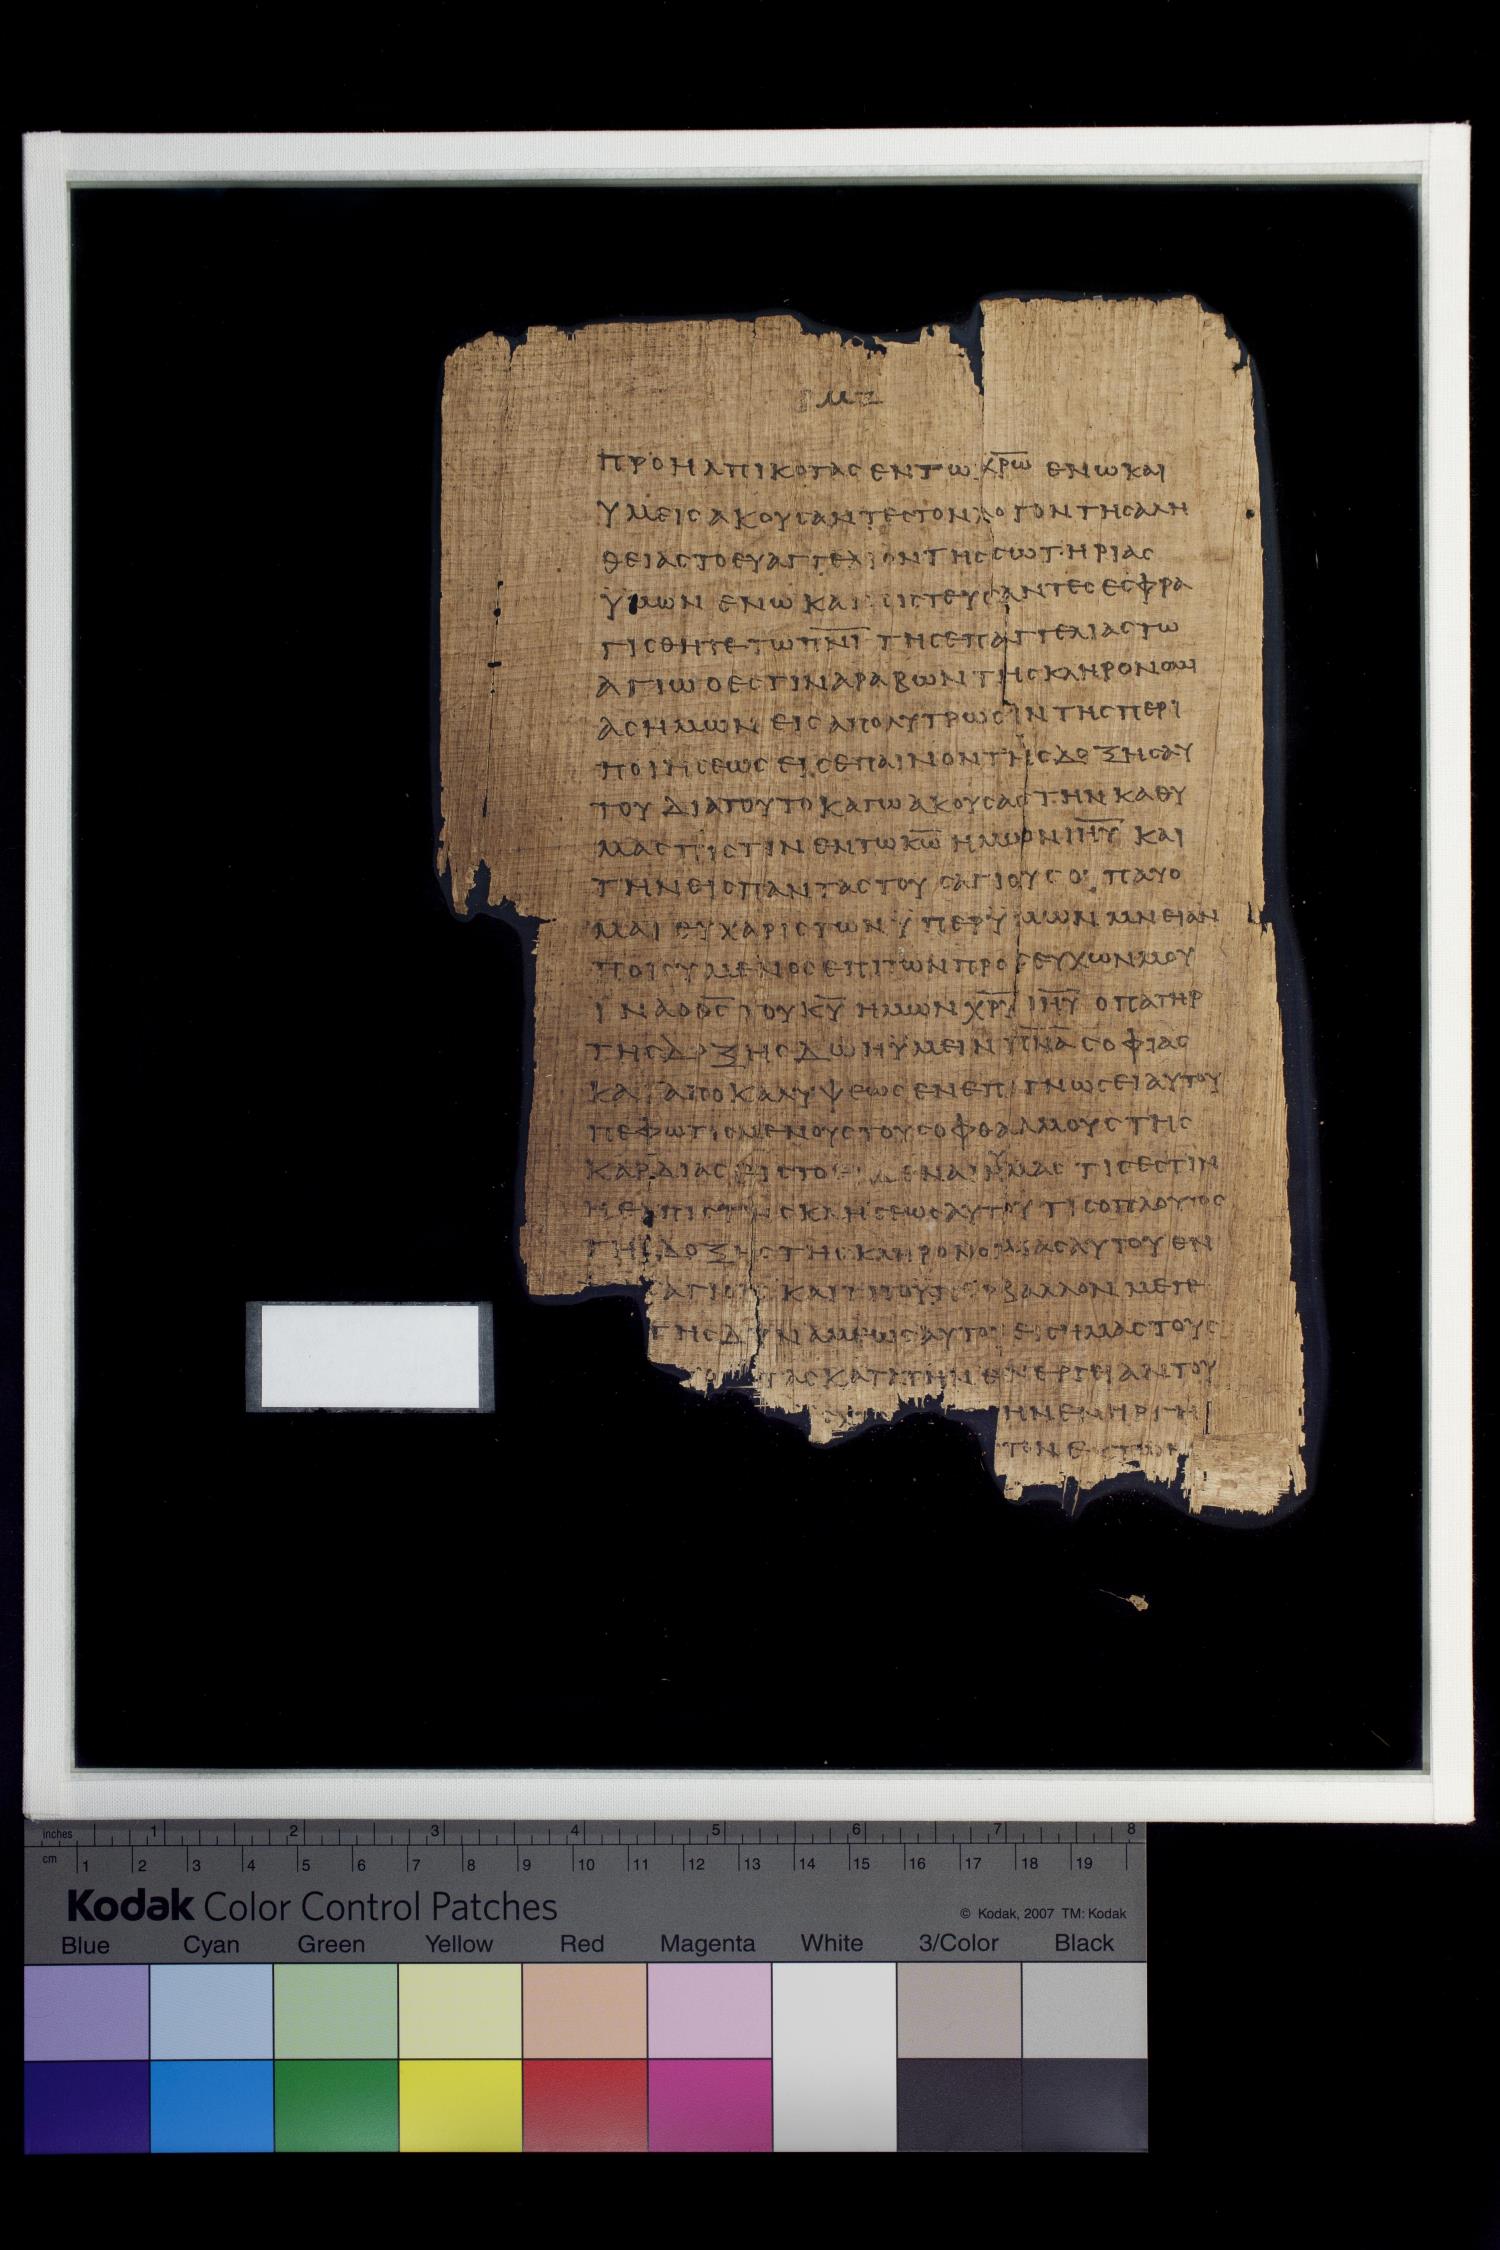 ρμζ
ΠΡΟΗΛΠΙΚΟΤΑΣ ΕΝ ΤΩ Χ̅Ρ̅Ω̅ ΕΝ Ω ΚΑΙ
ΥΜΕΙΣ ΑΚΟΥΣΑΝΤΕΣ ΤΟΝ ΛΟΓΟΝ ΤΗΣ ΑΛΗ
ΘΕΙΑΣ ΤΟ ΕΥΑΓΓΕΛΙΟΝ ΤΗΣ ΣΩΤΗΡΙΑΣ
ΥΜΩΝ ΕΝ Ω ΚΑΙ ΠΙΣΤΕΥΣΑΝΤΕΣ ΕΣΦΡΑ
ΓΙΣΘΗΤΕ ΤΩ Π̅Ν̅Ι̅ ΤΗΣ ΕΠΑΓΓΕΛΙΑΣ ΤΩ
ΑΓΙΩ Ο ΕΣΤΙΝ ΑΡΑΒΩΝ ΤΗΣ ΚΛΗΡΟΝΟΜΙ
ΑΣ ΗΜΩΝ ΕΙΣ ΑΠΟΛΥΤΡΩΣΙΝ ΤΗΣ ΠΕΡΙ
ΠΟΙΗΣΕΩΣ ΕΙΣ ΕΠΑΙΝΟΝ ΤΗΣ ΔΟΞΗΣ ΑΥ
ΤΟΥ ΔΙΑ ΤΟΥΤΟ ΚΑΓΩ ΑΚΟΥΣΑΣ ΤΗΝ ΚΑΘ Υ
ΜΑΣ ΠΙΣΤΙΝ ΕΝ ΤΩ Κ̅Ω̅ ΙΗ̅Υ̅ ΚΑΙ
ΤΗΝ ΕΙΣ ΠΑΝΤΑΣ ΤΟΥΣ ΑΓΙΟΥΣ ΟΥ ΠΑΥΟ
ΜΑΙ ΕΥΧΑΡΙΣΤΩΝ ΥΠΕΡ ΥΜΩΝ ΜΝΕΙΑΝ
ΠΟΙΟΥΜΕΝΟΣ ΕΠΙ ΤΩΝ ΠΡΟΣΕΥΧΩΝ ΜΟΥ
ΙΝΑ Ο Θ̅Σ̅ ΤΟΥ Κ̅Υ̅ ΗΜΩΝ Χ̅Ρ̅Υ̅ Ι̅Η̅Υ̅ Ο ΠΑΤΗΡ
ΤΗΣ ΔΟΞΗΣ ΔΩΗ ΥΜΕΙΝ Π̅Ν̅Α̅ ΣΟΦΙΑΣ
ΚΑΙ ΑΠΟΚΑΛΥΨΕΩΣ ΕΝ ΕΠΙΓΝΩΣΕΙ ΑΥΤΟΥ
ΠΕΦΩΤΙΣΜΕΝΟΥΣ ΤΟΥΣ ΟΦΘΑΛΜΟΥΣ ΤΗΣ
ΚΑΡΔΙΑΣ ΕΙΣ ΤΟ ΤΙΣ ΕΣΤΙΝ
Η ΕΛΠΙΣ ΤΗΣ ΚΛΗΣΕΩΣ ΑΥΤΟΥ ΤΙΣ Ο ΠΛΟΥΤΟΣ
ΤΗΣ ΔΟΞΗΣ ΤΗΣ ΚΛΗΡΟΝΟΜΙΑΣ ΑΥΤΟΥ ΕΝ
ΑΓΙΟΙΣ ΚΑΙ ΜΕΓΕ
ΤΗΣ ΔΥΝΑΜΕΩΣ ΑΥΤΟΥ ΕΙΣ ΗΜΑΣ ΤΟΥΣ
ΚΑΤΑ ΤΗΝ ΕΝΕΡΓΕΙΑΝ ΤΟΥ
ΗΝ ΕΝΗΡΓΗ